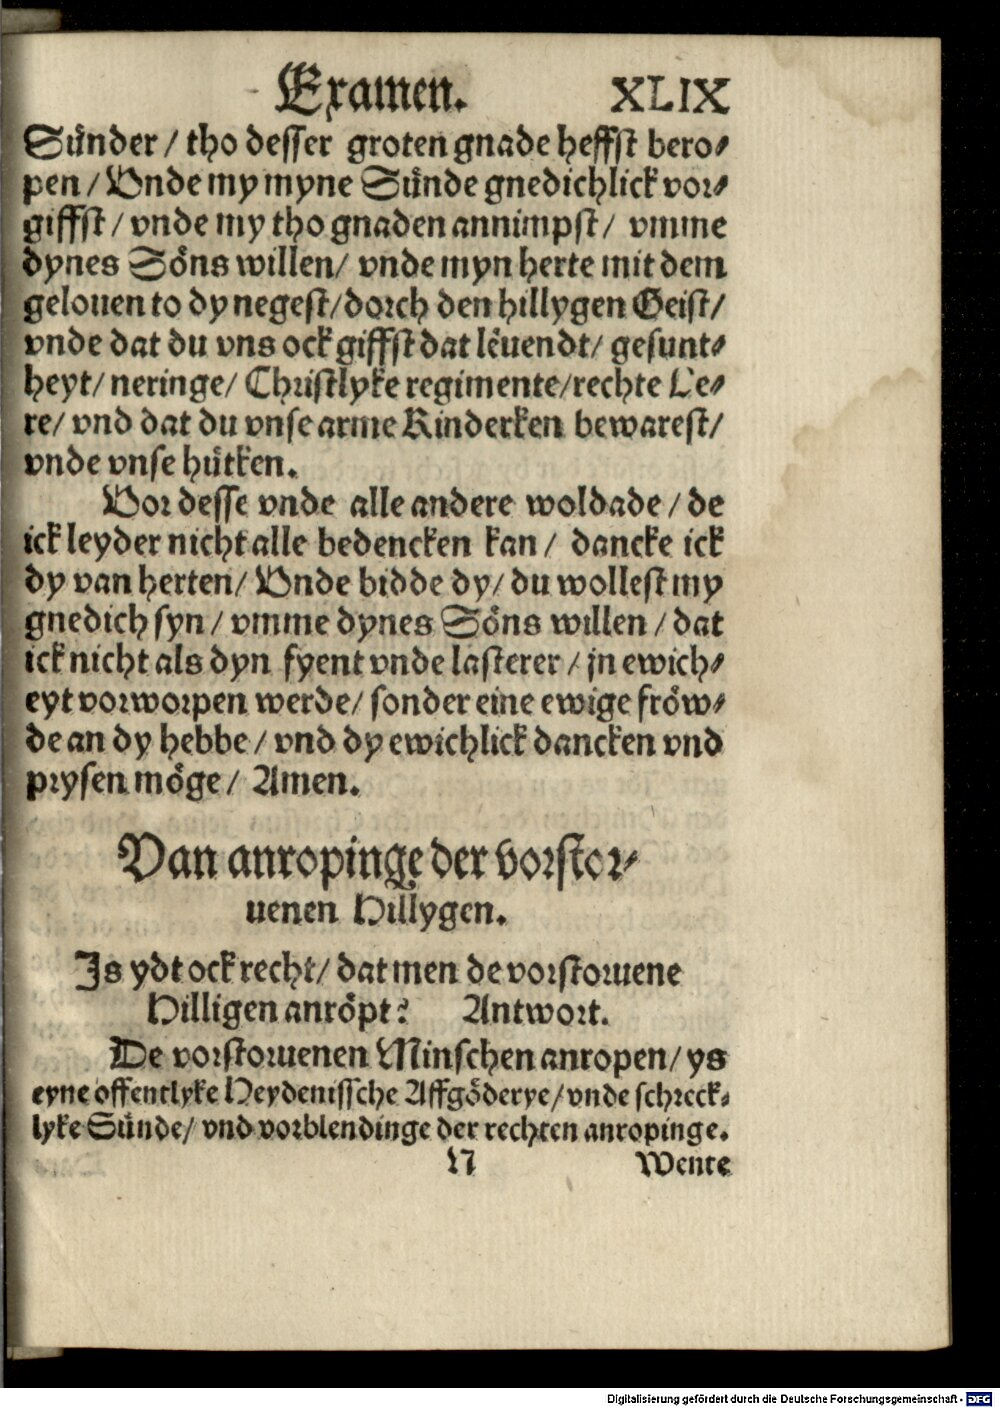 Examen. XLIX
Sünder / tho desser groten gnade heffst bero⸗
pen / Vnde my myne Sünde gnedichlick vor⸗
giffst / vnde my tho gnaden annimpst / vmme
dynes Söns willen / vnde myn herte mit dem
gelouen to dy negest / dorch den hillygen Geist /
vnde dat du vns ock giffst dat lëuendt / gesunt⸗
heyt / neringe / Christlyke regimente / rechte Le⸗
re / vnd dat du vnse arme Kinderken bewarest /
vnde vnse hütken.
Vor desse vnde alle andere woldade / de
ick leyder nicht alle bedencken kan / dancke ick
dy van herten / Vnde bidde dy / du wollest my
gnedich syn / vmme dynes Söns willen / dat
ick nicht als dyn fyent vnde lasterer / jn ewich⸗
eyt vorworpen werde / sonder eine ewige fröw⸗
de an dy hebbe / vnd dy ewichlick dancken vnd
prysen möge / Amen.
Van anropinge der vorstor⸗
uenen Hillygen.
Js ydt ock recht / dat men de vorstoruene
Hilligen anröpt? Antwort.
De vorstoruenen Minschen anropen / ys
eyne offentlyke Heydenissche Affgöderye / vnde schreck⸗
lyke Sünde / vnd vorblendinge der rechten anropinge.
N Wente
Digitalisierung gefördert durch die Deutsche Forschungsgemeinschaft - DFG